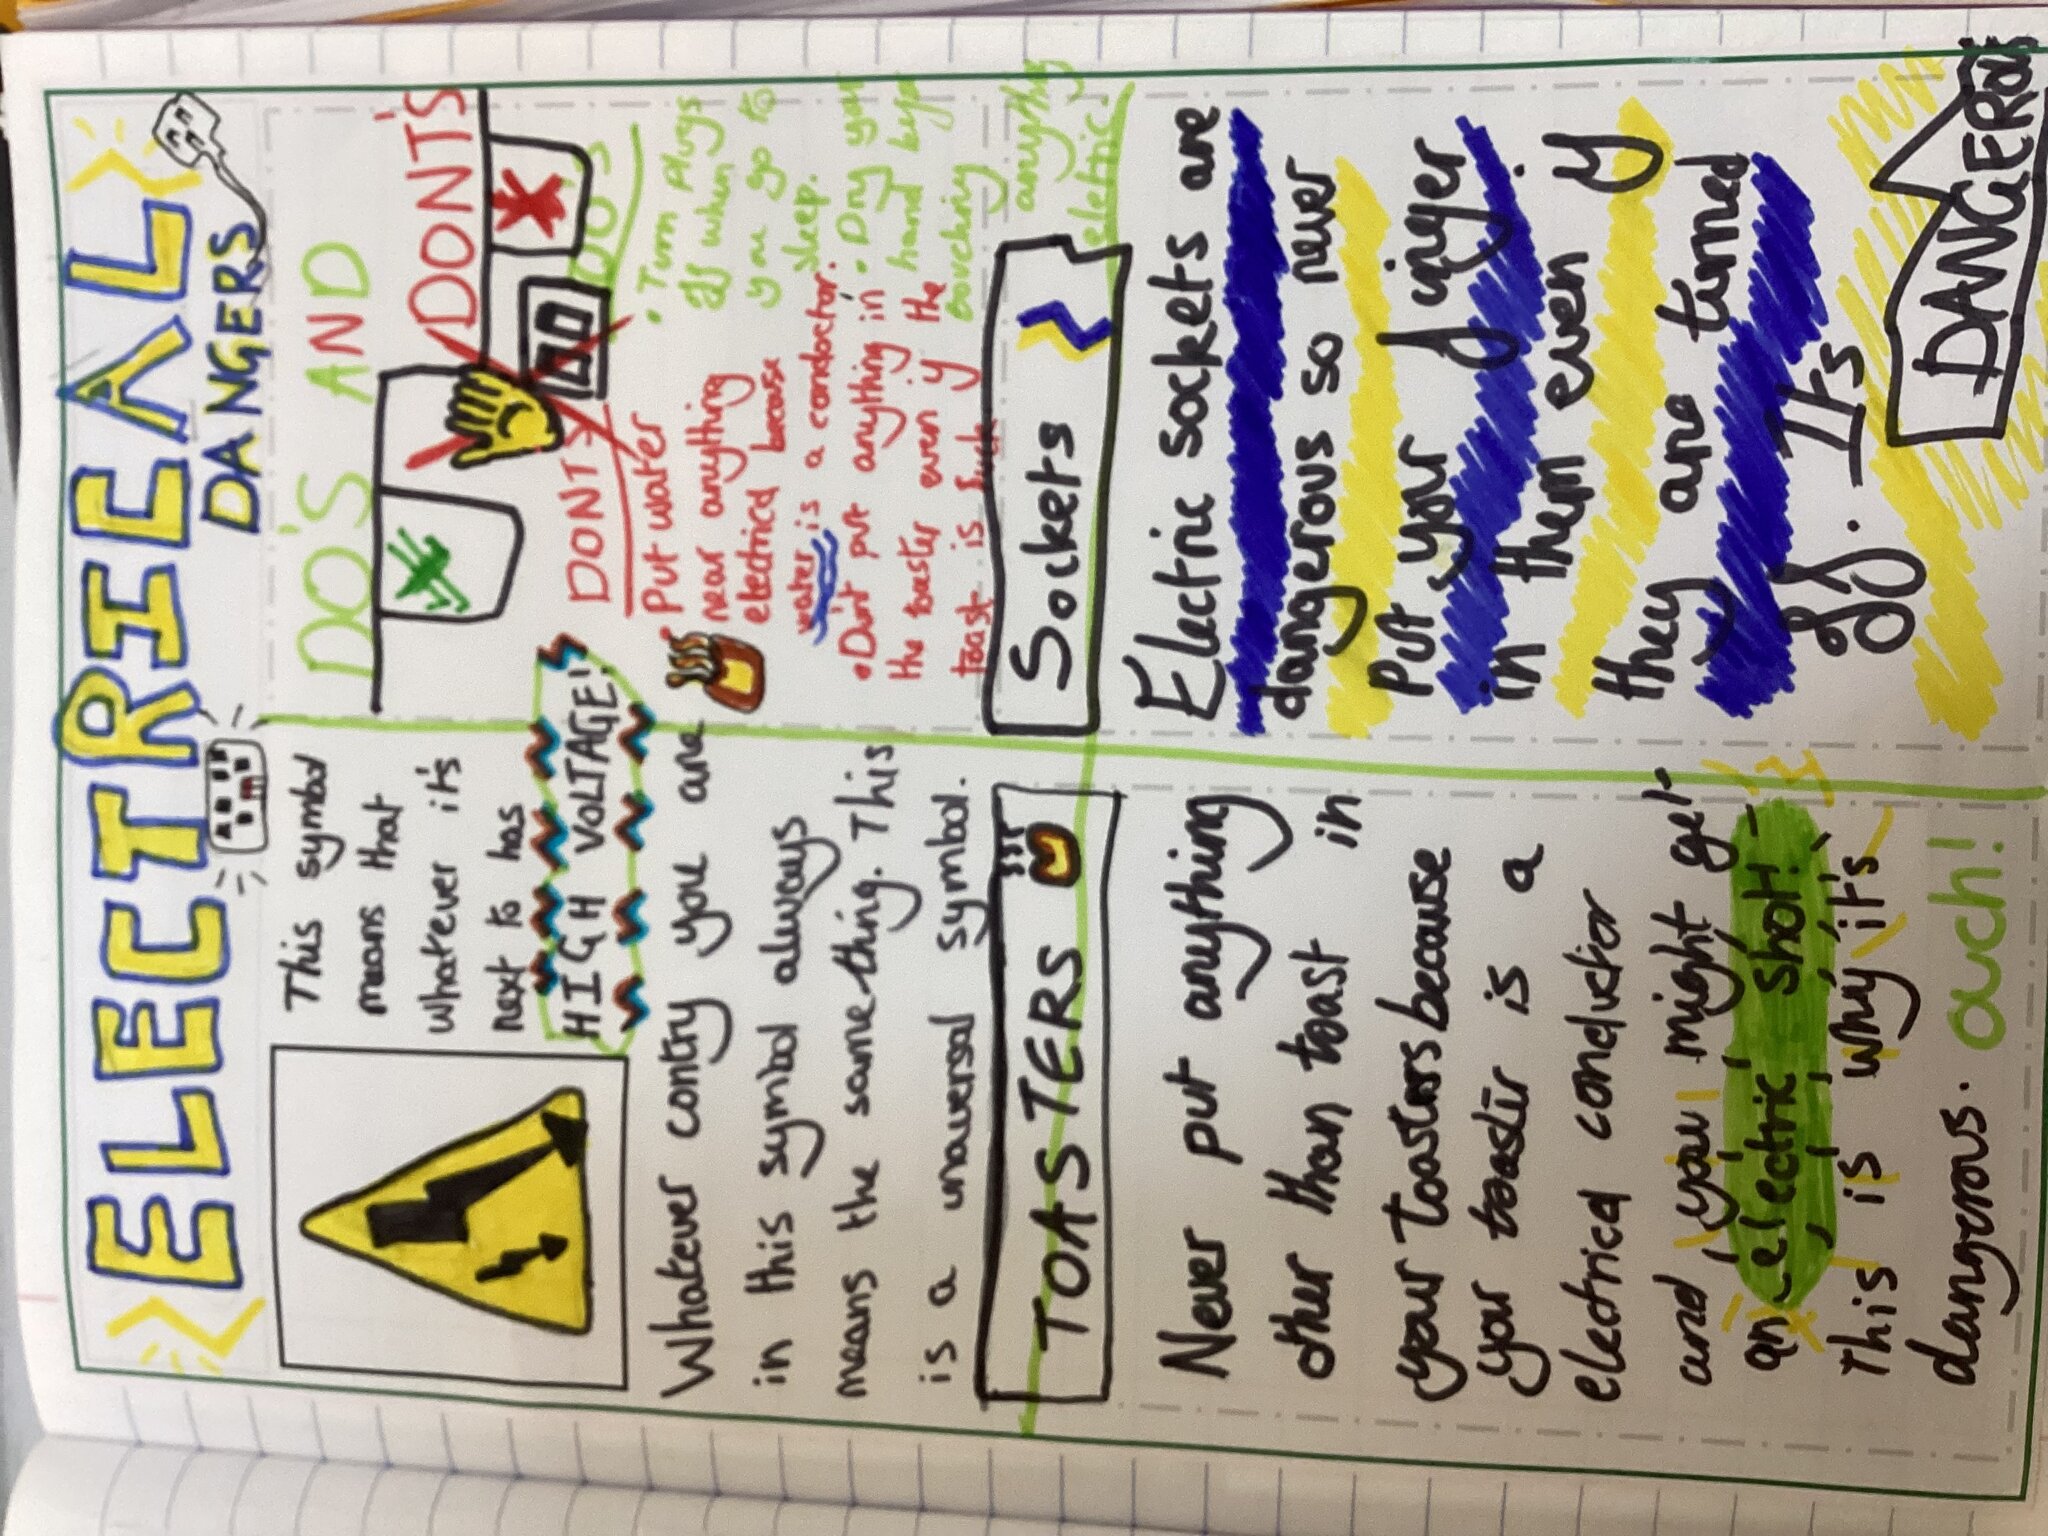 ELECTRICAL
DANGERS
This symbol
means that
whatever it's
next to has
HIGH VOLTAGE!
Whatever contry you are
in this symbol always
means the same thing. This
is a unaversal symbol.
DO'S AND
DONT'S
DONTS
• Put water
near anything
electrical because
water is a condoctor.
• Don't put anything in
the toaster even if the
toast is
DO'S
• Turn plugs
off when
you go to
sleep.
• Dry your
hand
touching
anything
eletric.
TOASTERS
Never put anything
other than toast in
your toasters because
your toaster is a
electrical conductor
and you might get
an electric shot!
This is why it's
dangerous. ouch!
Sockets
Electric sockets are
dangerous so never
Put your finger
in them even if
they are turned
off. It's
DANGEROUS